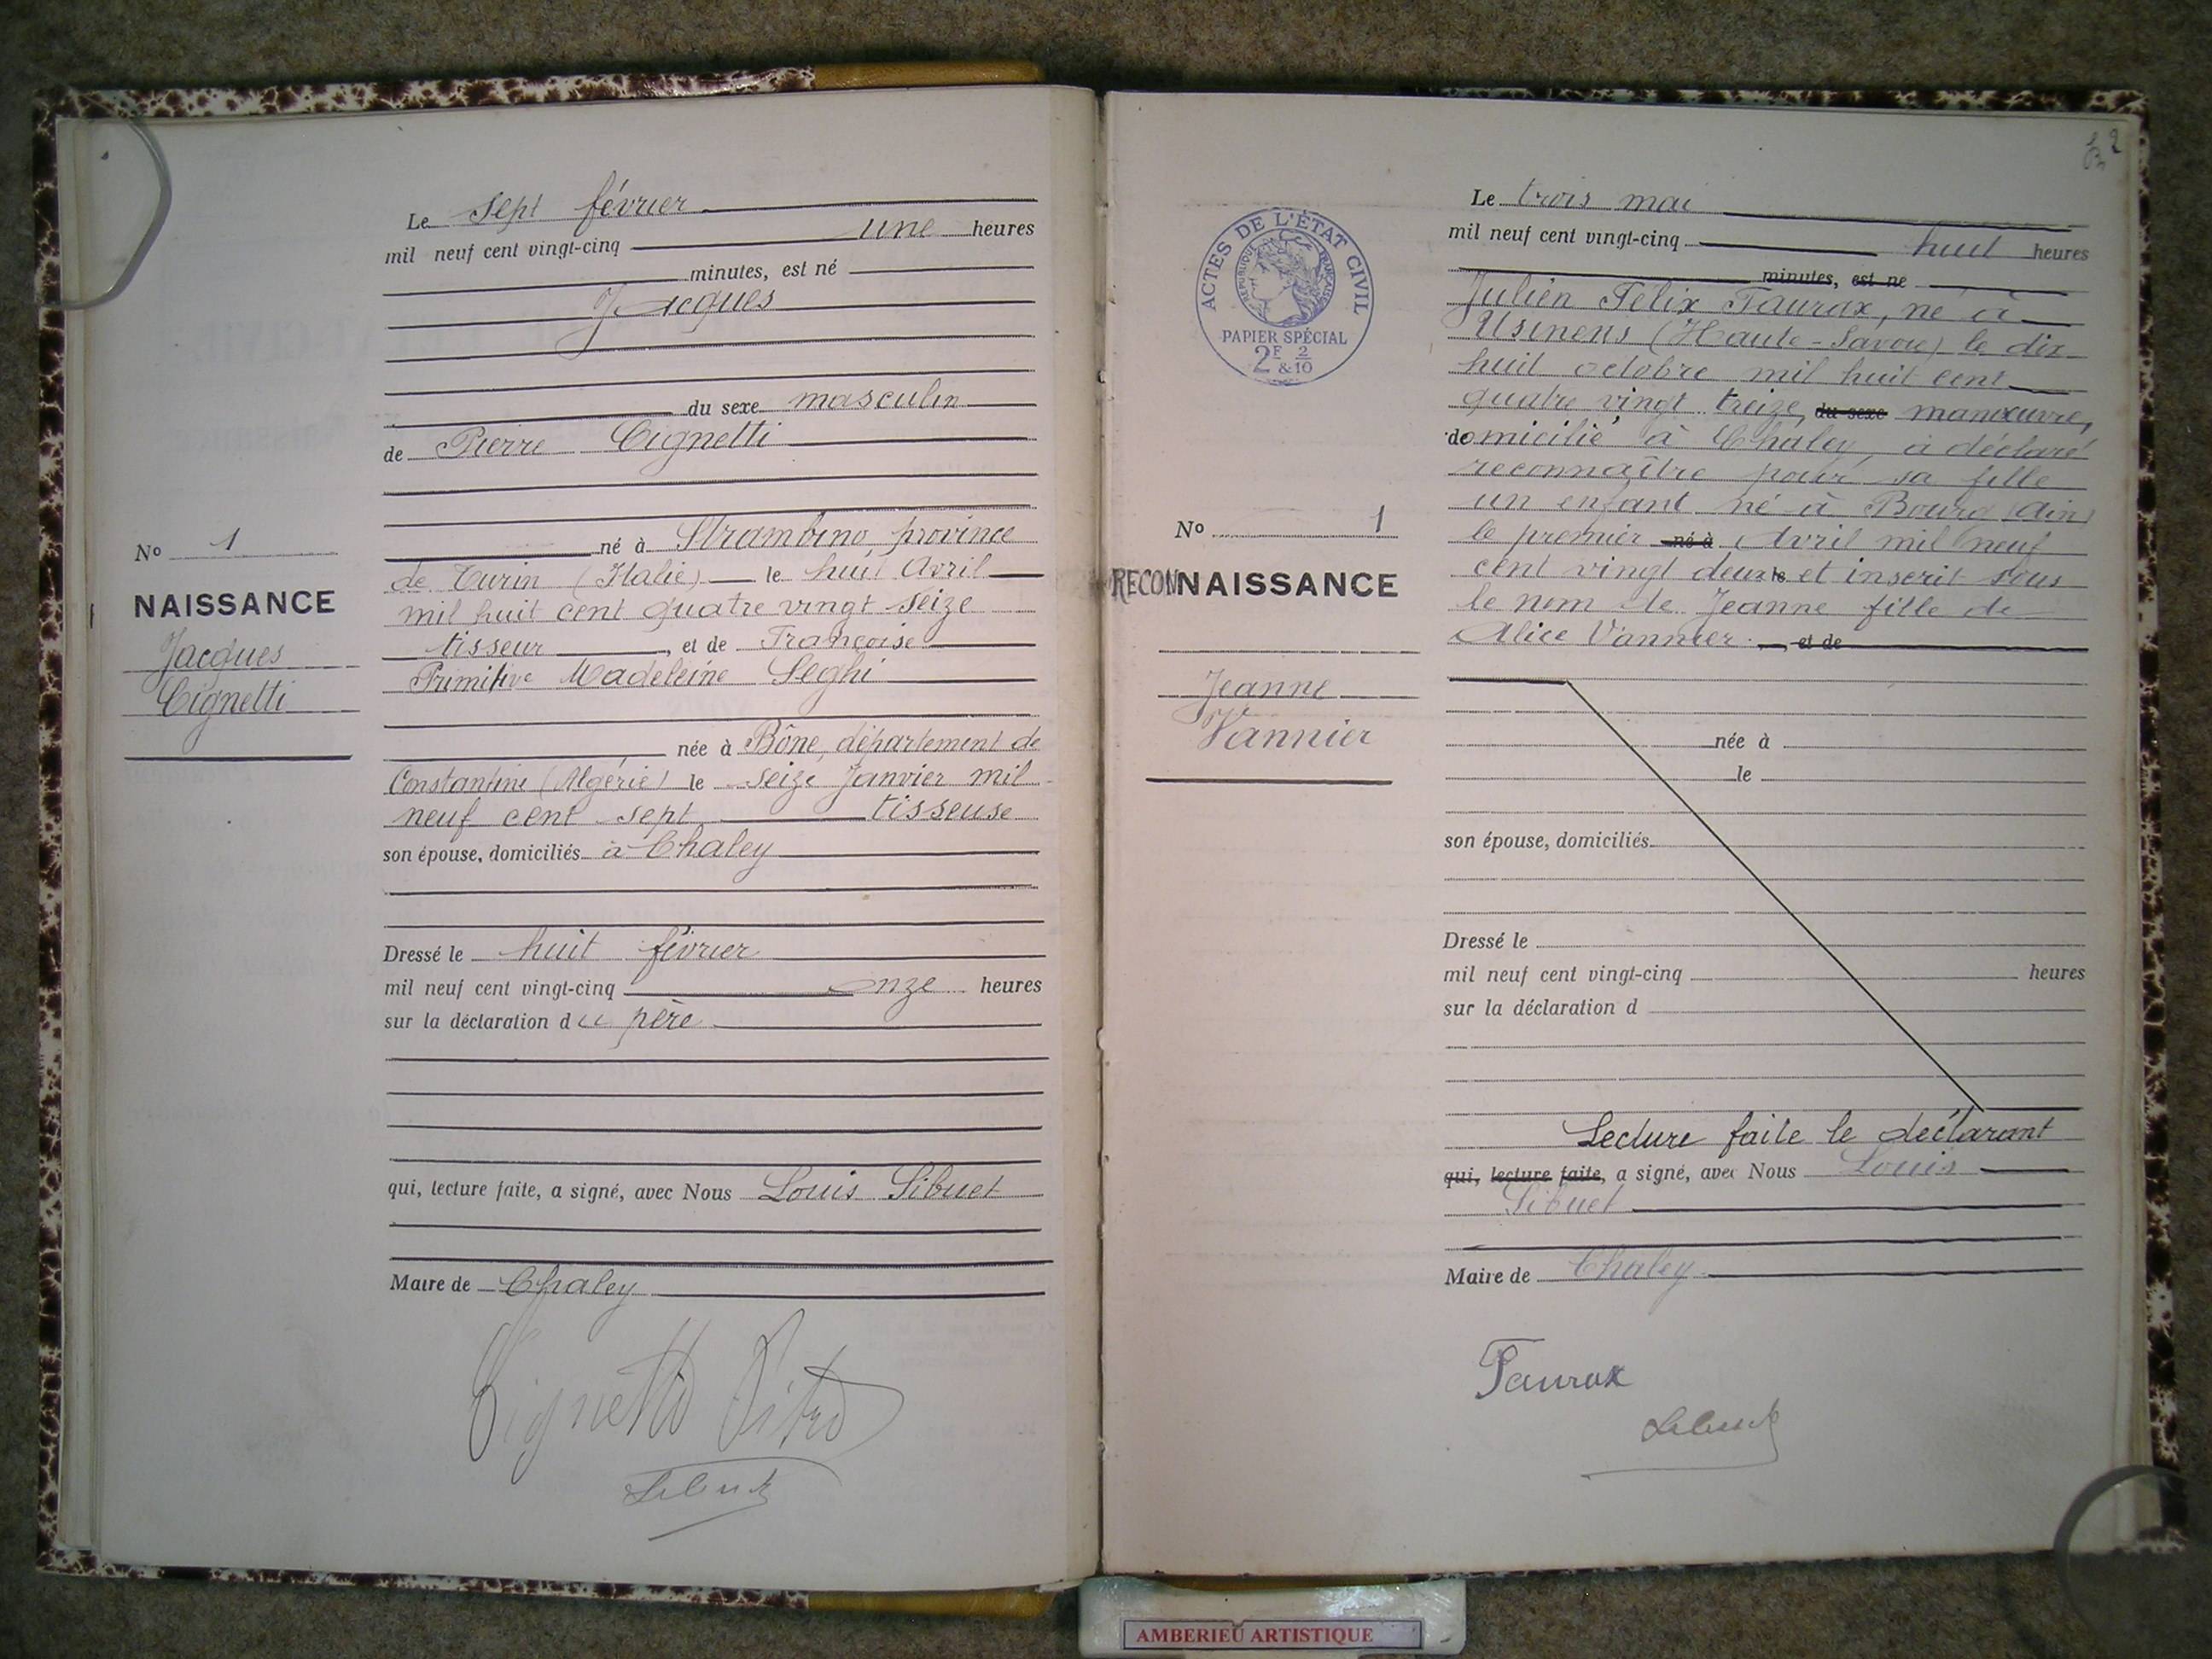 Le sept février
mil neuf cent vingt-cinq une heures
minutes, est né
Jacques
du sexe masculin
de Pierre Cignetti
né à Strambino, province
de Turin (Italie) le huit Avril
mil huit cent quatre vingt seize
tisseur, et de Françoise
Primitive Madeleine Seghi
née à Bône, département de
Constantine (Algérie) le seize Janvier mil
neuf cent sept tisseuse
son épouse, domiciliés à Chaley
Dressé le huit février
mil neuf cent vingt-cinq onze heures
sur la déclaration du père
qui, lecture faite, a signé, avec Nous Louis Sibuet
Maire de Chaley
Cignetti Pietro
Sibuet
No 1
NAISSANCE
Jacques
Cignetti
2
ACTES DE L'ÉTAT CIVIL
RÉPUBLIQUE FRANÇAISE
PAPIER SPÉCIAL
2F & 2/10
No 1
RECONNAISSANCE
Jeanne
Vannier
Le trois mai
mil neuf cent vingt-cinq huit heures
minutes, est né
Julien Félix Taurax, né à
Usinens (Haute-Savoie) le dix
huit octobre mil huit cent
quatre vingt treize, du sexe manœuvre,
domicilié à Chaley, a déclaré
reconnaître pour sa fille
un enfant né à Bourg (Ain)
le premier né à Avril mil neuf
cent vingt deux le et inscrit sous
le nom de Jeanne fille de
Alice Vannier. , et de
née à
le
son épouse, domiciliés
Dressé le
mil neuf cent vingt-cinq heures
sur la déclaration d
Lecture faite le déclarant
qui, lecture faite, a signé, avec Nous Louis
Sibuet
Maire de Chaley
Taurax
Sibuet
AMBERIEU ARTISTIQUE